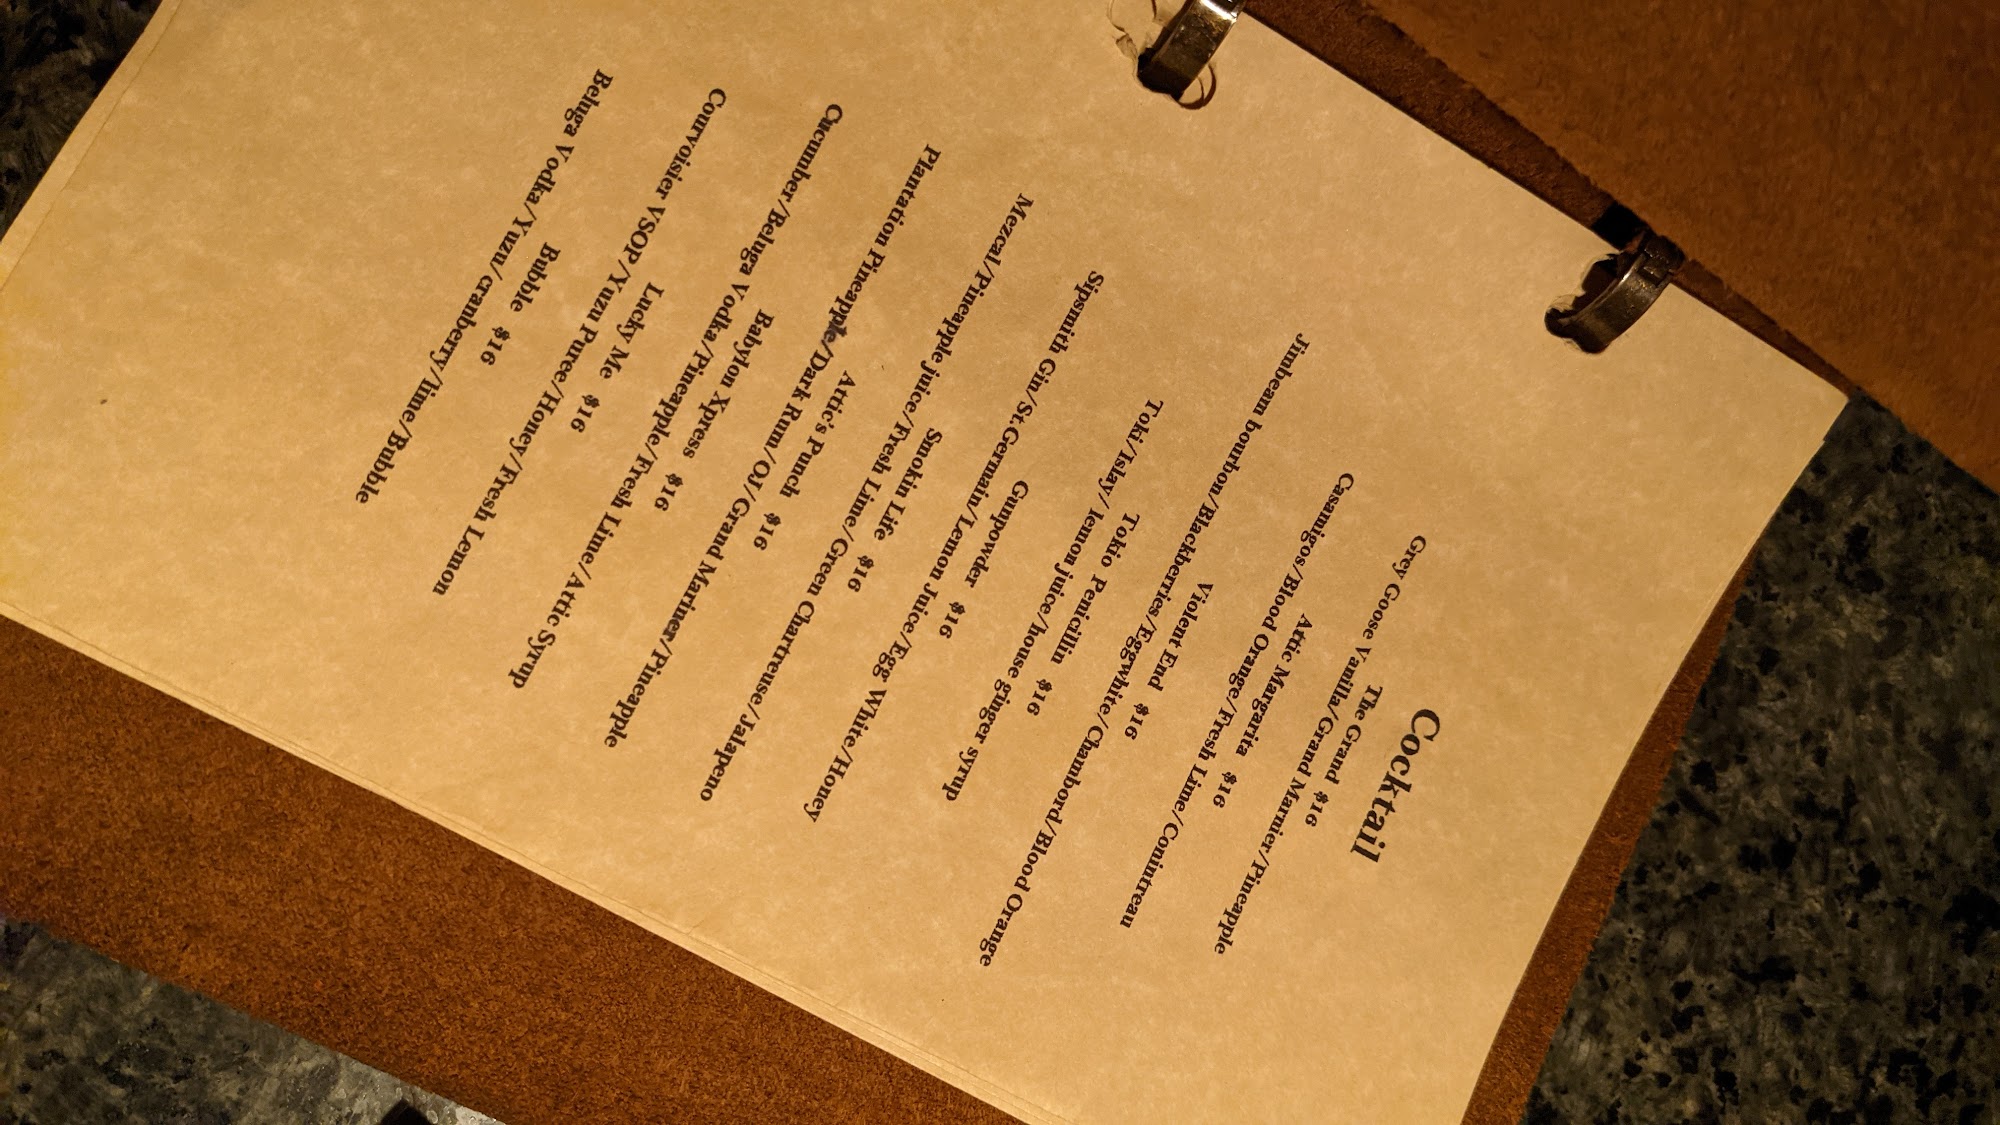 Cocktail
The Grand $16
Grey Goose Vanilla/Grand Marnier/Pineapple
Attic Margarita $16
Casamigos/Blood Orange/Fresh Lime/Conintreau
Violent End $16
Jimbeam bourbon/Blackberries/Eggwhite/Chambord/Blood Orange
Tokio Penicillin $16
Toki/Islay/ lemon juice/house ginger syrup
Gunpowder $16
Sipsmith Gin/St.Germain/Lemon Juice/Egg White/Honey
Smokin Life $16
Mezcal/Pineapple juice/Fresh Lime/Green Chartreuse/Jalapeno
Attic's Punch $16
Plantation Pineapple/Dark Rum/OJ/Grand Mariner/Pineapple
Babylon Xpress $16
Cucumber/Beluga Vodka/Pineapple/Fresh Lime/Attic Syrup
Lucky Me $16
Courvoisier VSOP/Yuzu Puree/Honey/Fresh Lemon
Bubble $16
Beluga Vodka/Yuzu/cranberry/lime/Bubble